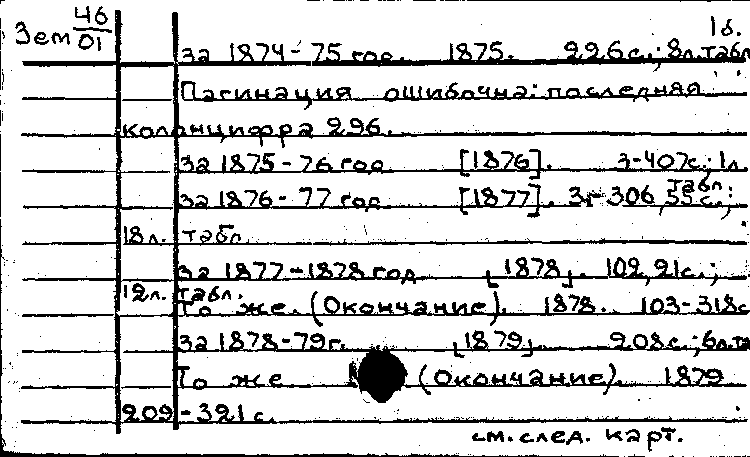 Зем 46/01
1б.
За 1874-75 год. 1875. 226 с.; 8 л. табл
Пагинация ошибочна: последняя
колонцифра 296.
За 1875-76 год [1876]. 3-407 с.; 1 л.
табл.;
За 1876-77 год [1877]. 3-306, 55 с.;
18 л. табл.
За 1877-1878 год [1878]. 102, 21 с.;
12 л. табл.
То же. (Окончание). 1878. 103-318 с
За 1878-79 г. [1879]. 208 с.; 6 л. та
То же (Окончание). 1879
209-321 с.
см. след. карт.